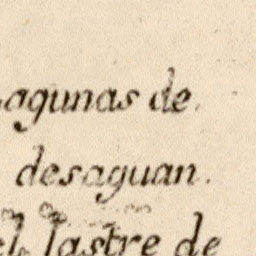 agunas de
desaguan.
el lastre de